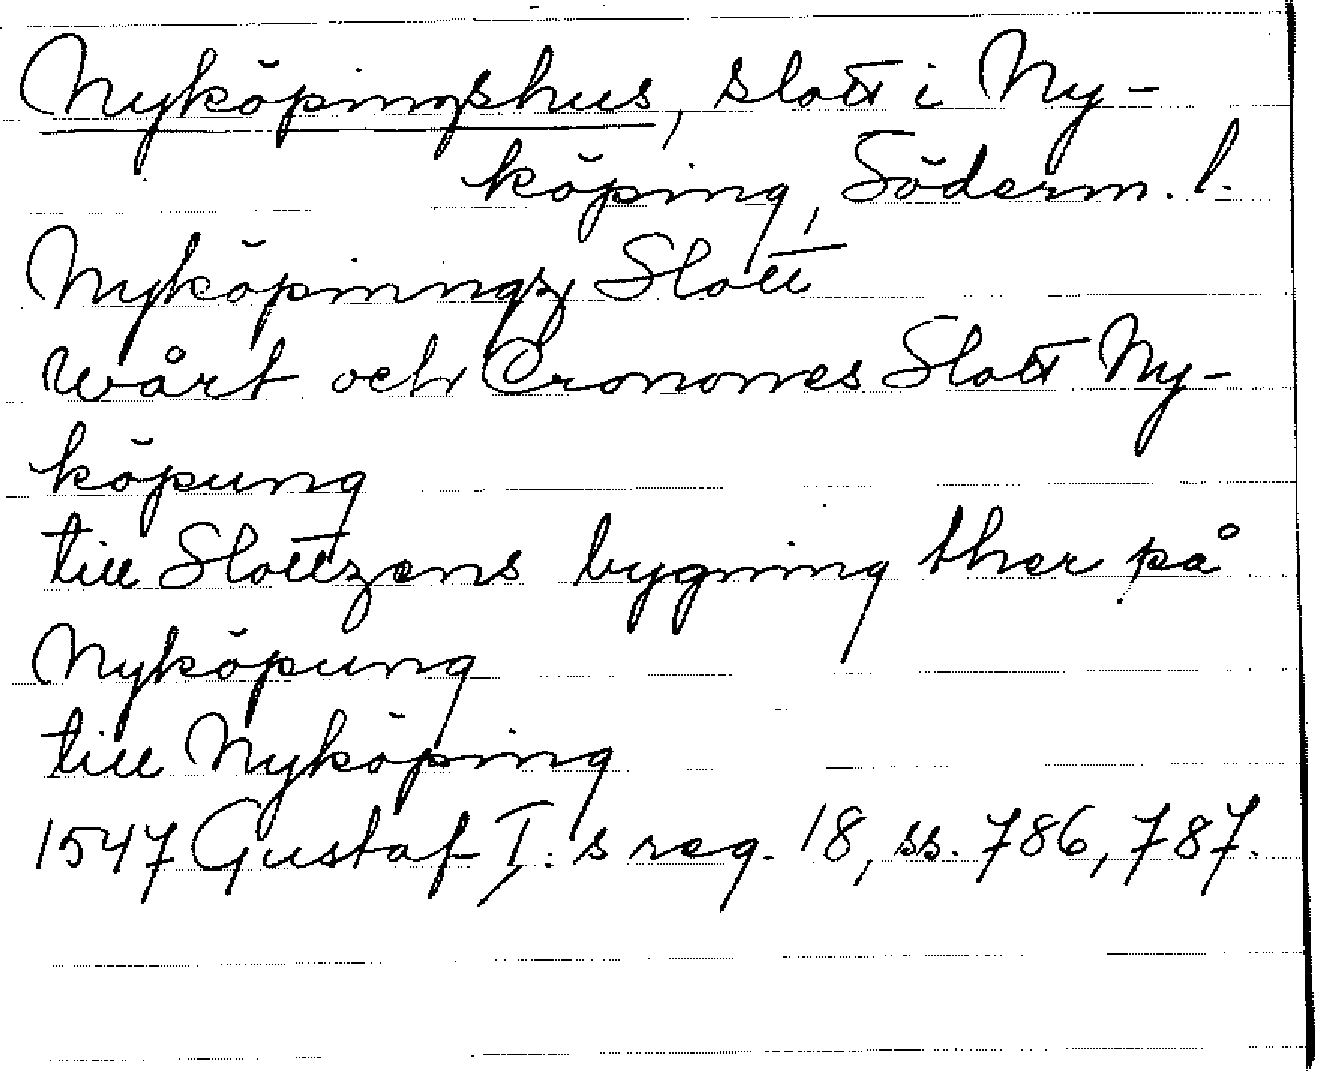 Nyköpingshus, slott i Ny-
köping, Söderm. l.
Nyköpinngz Slott
wårt och Cronones Slott Ny-
köpung
till Slottzens bygning ther på
Nyköpung
till Nyköping
1547 Gustaf I:s reg. 18, ss. 786, 787.